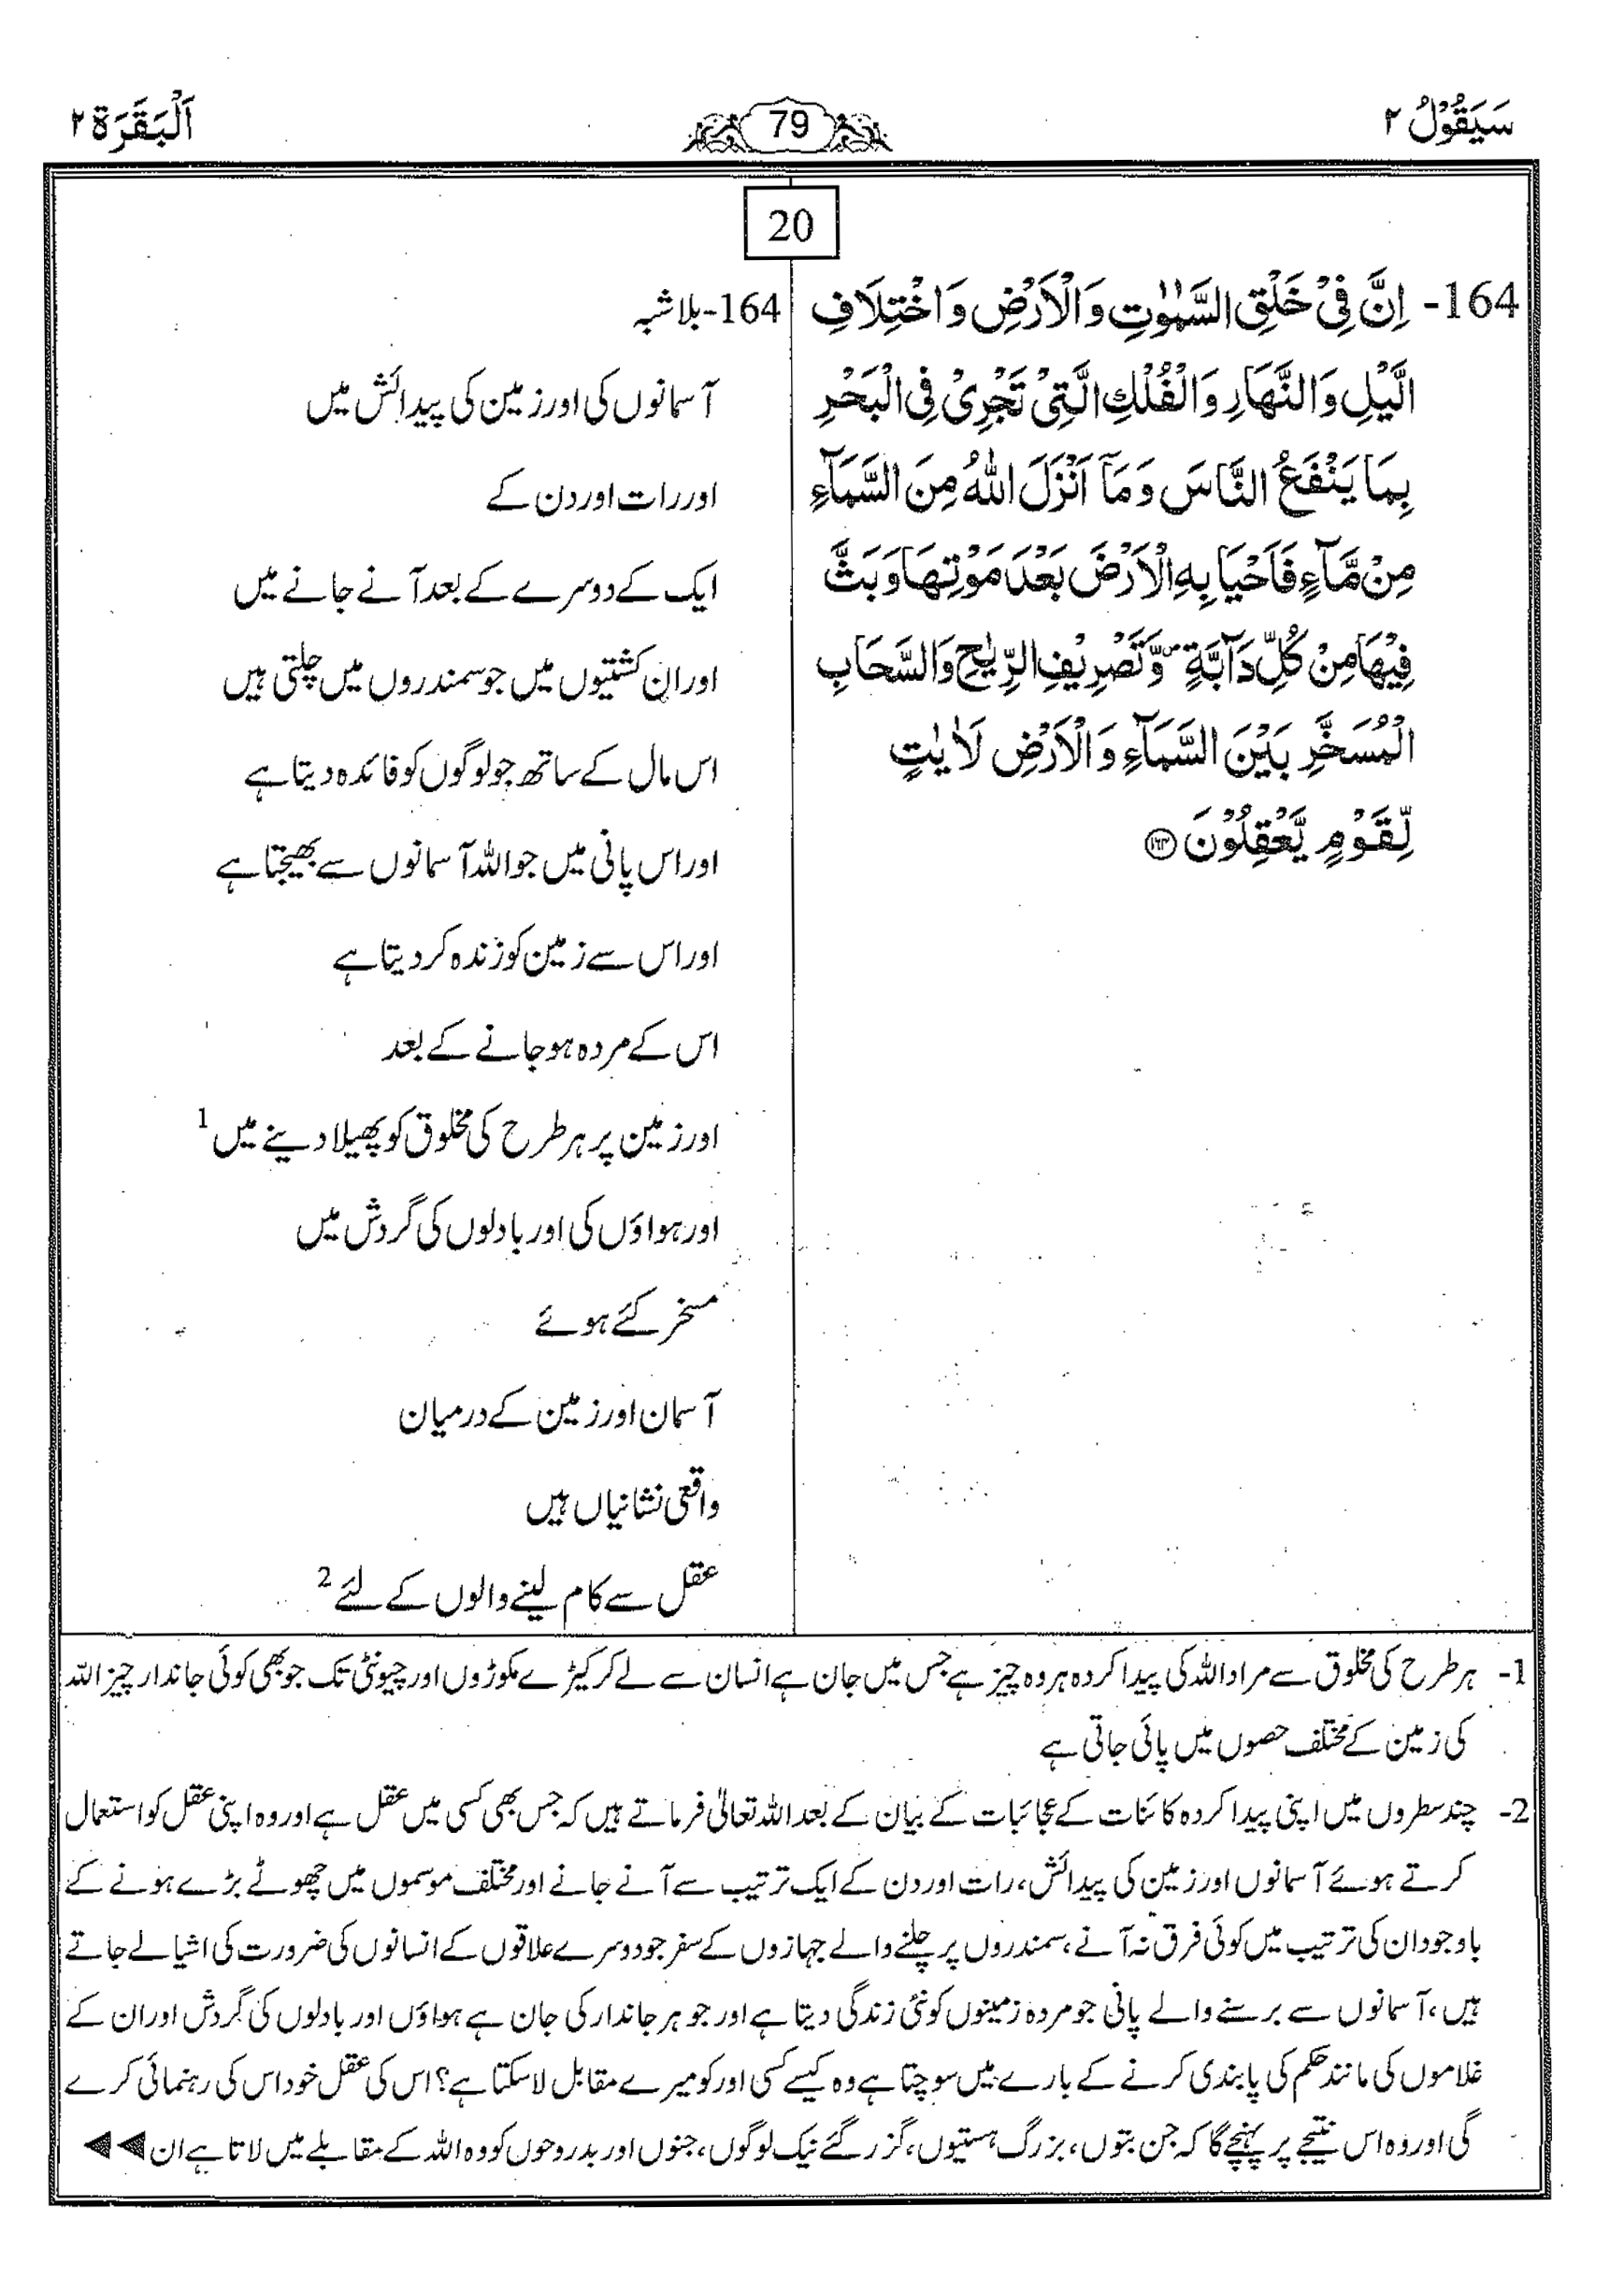 سَيَقُوْلُ ٢
79
اَلْبَقَرَة ٢
20
164- اِنَّ فِيْ خَلْقِ السَّمٰوٰتِ وَالْاَرْضِ وَاخْتِلَافِ
الَّيْلِ وَالنَّهَارِ وَالْفُلْكِ الَّتِيْ تَجْرِيْ فِي الْبَحْرِ
بِمَا يَنْفَعُ النَّاسَ وَمَآ اَنْزَلَ اللّٰهُ مِنَ السَّمَآءِ
مِنْ مَّآءٍ فَاَحْيَا بِهِ الْاَرْضَ بَعْدَ مَوْتِهَا وَبَثَّ
فِيْهَا مِنْ كُلِّ دَآبَّةٍ ۪ وَّتَصْرِيْفِ الرِّيٰحِ وَالسَّحَابِ
الْمُسَخَّرِ بَيْنَ السَّمَآءِ وَالْاَرْضِ لَاٰيٰتٍ
لِّقَوْمٍ يَّعْقِلُوْنَ ۝۱۶۴
164- بلاشبہ
آسمانوں کی اور زمین کی پیدائش میں
اور رات اور دن کے
ایک کے دوسرے کے بعد آنے جانے میں
اور ان کشتیوں میں جو سمندروں میں چلتی ہیں
اس مال کے ساتھ جو لوگوں کو فائدہ دیتا ہے
اور اس پانی میں جو اللہ آسمانوں سے بھیجتا ہے
اور اس سے زمین کو زندہ کر دیتا ہے
اس کے مردہ ہو جانے کے بعد
اور زمین پر ہر طرح کی مخلوق کو پھیلا دینے میں 1
اور ہواؤں کی اور بادلوں کی گردش میں
مسخر کئے ہوئے
آسمان اور زمین کے درمیان
واقعی نشانیاں ہیں
عقل سے کام لینے والوں کے لئے 2
1- ہر طرح کی مخلوق سے مراد اللہ کی پیدا کردہ ہر وہ چیز ہے جس میں جان ہے انسان سے لے کر کیڑے مکوڑوں اور چیونٹی تک جو بھی کوئی جاندار چیز اللہ
کی زمین کے مختلف حصوں میں پائی جاتی ہے
2- چند سطروں میں اپنی پیدا کردہ کائنات کے عجائبات کے بیان کے بعد اللہ تعالیٰ فرماتے ہیں کہ جس بھی کسی میں عقل ہے اور وہ اپنی عقل کو استعمال
کرتے ہوئے آسمانوں اور زمین کی پیدائش، رات اور دن کے ایک ترتیب سے آنے جانے اور مختلف موسموں میں چھوٹے بڑے ہونے کے
باوجود ان کی ترتیب میں کوئی فرق نہ آنے، سمندروں پر چلنے والے جہازوں کے سفر جو دوسرے علاقوں کے انسانوں کی ضرورت کی اشیا لے جاتے
ہیں، آسمانوں سے برسنے والے پانی جو مردہ زمینوں کو نئی زندگی دیتا ہے اور جو ہر جاندار کی جان ہے ہواؤں اور بادلوں کی گردش اور ان کے
غلاموں کی مانند حکم کی پابندی کرنے کے بارے میں سوچتا ہے وہ کیسے کسی اور کو میرے مقابل لا سکتا ہے؟ اس کی عقل خود اس کی رہنمائی کرے
گی اور وہ اس نتیجے پر پہنچے گا کہ جن بتوں، بزرگ ہستیوں، گزر گئے نیک لوگوں، جنوں اور بدروحوں کو وہ اللہ کے مقابلے میں لاتا ہے ان ◄◄